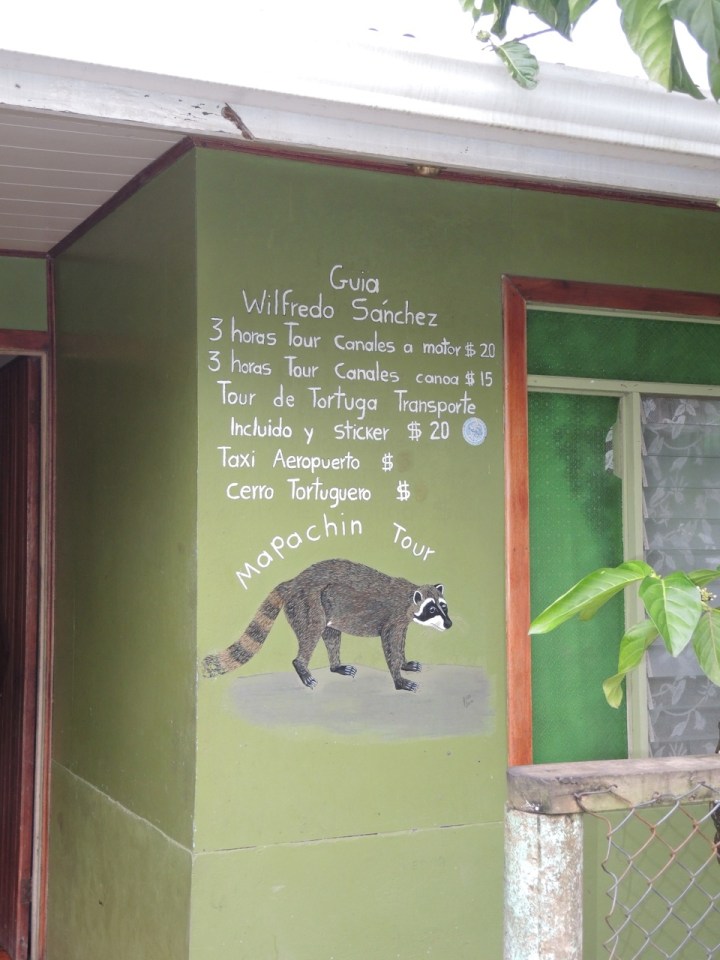 Guia
Wilfredo Sánchez
3 horas Tour canales a motor $ 20
3 horas Tour canales canoa $ 15
Tour de Tortuga Transporte
Incluido y sticker $ 20
Taxi Aeropuerto $
cerro Tortuguero $
Mapachin Tour